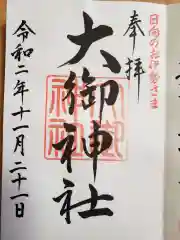 日向のお伊勢さま
奉拝
大御神社
令和二年十一月二十一日